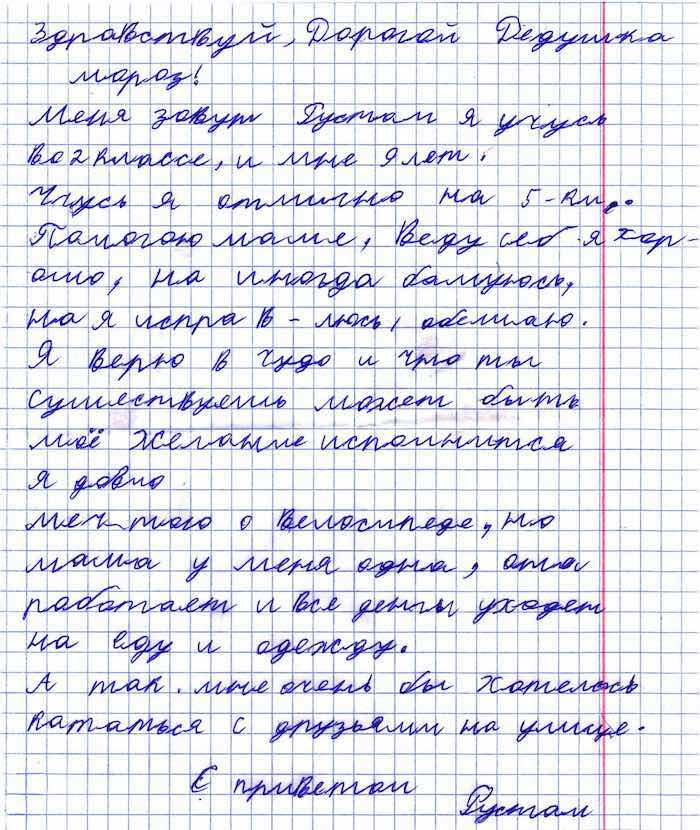 Здравствуй, Дорогой Дедушка
мороз!
Меня зовут Рустам я учусь
во 2 классе, и мне 9 лет.
Учусь я отлично на 5-ки.
Помогаю маме, Веду себя хор-
ошо, на иногда балуюсь,
на я исправ-люсь, обещаю.
Я верю в чудо и что ты
существуешь может быть
моё желание исполнится
я давно
мечтаю о велосипеде, но
мама у меня одна, она
работает и все деньги уходят
на еду и одежду.
А так. мне очень бы хотелось
кататься с друзьями на улице.
С приветом
Рустам